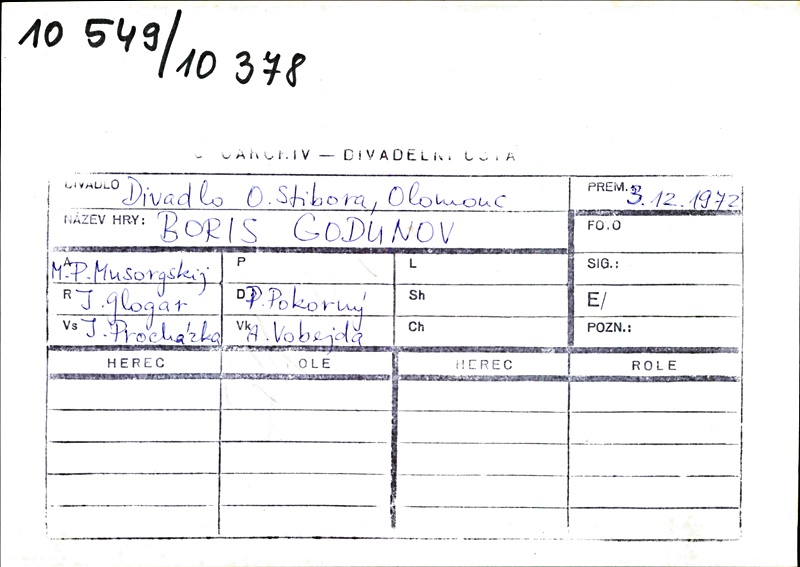 10 549/10 378
DIVADELNÍ ÚSTA
DIVADLO Divadlo O. Stibora, Olomouc PREM. 3.12.1972
NÁZEV HRY: BORIS GODUNOV FO.O
A M.P. Musorgskij P L SIG.:
R J. Glogar D P. Pokorný Sh E/
Vs J. Procházka Vk A. Vobejda Ch POZN.:
HEREC OLE HEREC ROLE